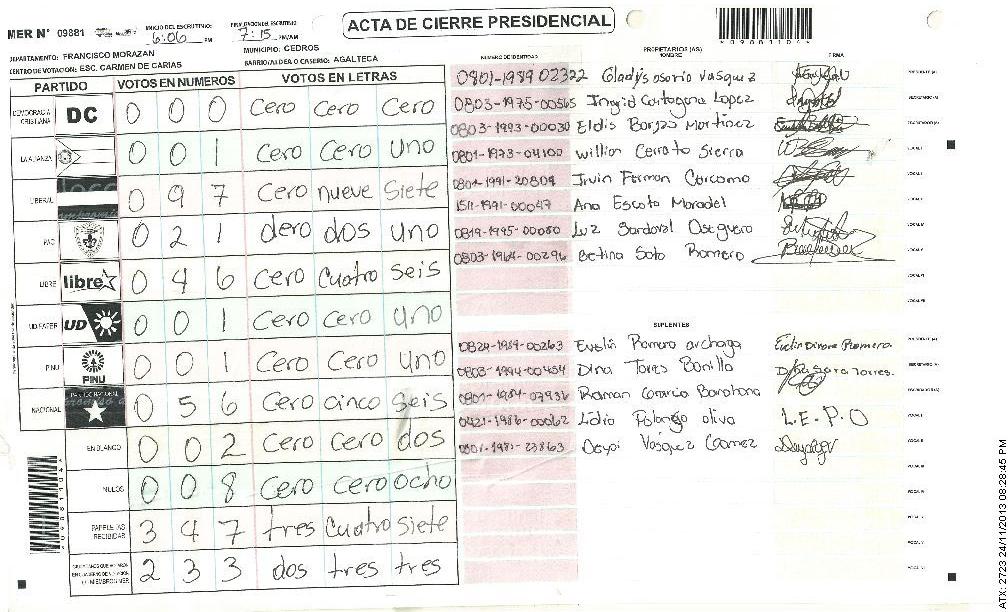 ACTA DE CIERRE PRESIDENCIAL
MER N° 09881
INICIO DEL ESCRUTINIO: 6:06 PM
FINALIZACION DEL ESCRUTINIO 7:15 PM/AM
*09881104*
DEPARTAMENTO: FRANCISCO MORAZAN
MUNICIPIO: CEDROS
CENTRO DE VOTACION: ESC. CARMEN DE CARIAS
BARRIO/ALDEA O CASERIO: AGALTECA
PARTIDO VOTOS EN NUMEROS VOTOS EN LETRAS
DEMOCRACIA CRISTIANA DC 0 0 0 Cero Cero Cero
LA ALIANZA 0 0 1 Cero Cero Uno
LIBERAL 0 9 7 Cero nueve Siete
PAC 0 2 1 dero dos Uno
LIBRE libre 0 4 6 Cero Cuatro seis
UD/FAPER UD 0 0 1 Cero Cero Uno
PINU PINU 0 0 1 Cero Cero Uno
NACIONAL 0 5 6 Cero cinco Seis
EN BLANCO 0 0 2 Cero Cero dos
NULOS 0 0 8 Cero Cero ocho
PAPELETAS RECIBIDAS 3 4 7 tres Cuatro Siete
2 3 3 dos tres tres
NUMERO DE IDENTIDAD PROPIETARIOS (AS) NOMBRE FIRMA
0801-1989 02322 Gladys osorio Vasquez PRESIDENTE (A)
0803-1975-00565 Ingrid Cartagena Lopez SECRETARIO (A)
0803-1993-00030 Eldis Borjas Martinez ESCRUTADOR (A)
0801-1973-04100 Willian Cerrato Sierra VOCAL I
0801-1991-20809 Irvin Ferman Carcamo VOCAL II
1511-1991-00047 Ana Escoto Maradel VOCAL III
0819-1995-00080 Luz Sandoval Oseguera VOCAL IV
0803-1964-00296 Betina Soto Romero VOCAL V
SUPLENTES
0824-1989-00263 Evelin Romero archaga PRESIDENTE (A)
0803-1994-00454 Dina Torres Bonilla SECRETARIO (A)
0801-1984-07936 Raman Barahona ESCRUTADOR (A)
0421-1986-00062 Lidia oliva L.E.P.O VOCAL I
0801-1981-23863 Deysi Vasquez Gomez VOCAL II
*09881104*
ATX: 2723 24/11/2013 08:28:45 PM